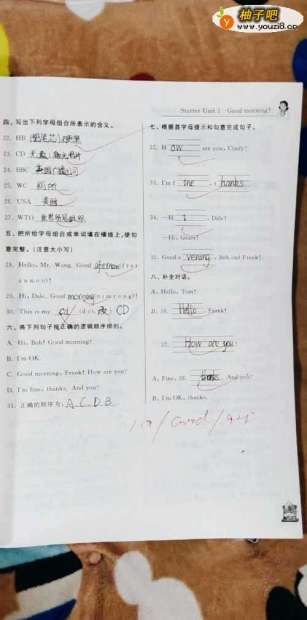 柚子吧
www.youzi8.cn
Starter Unit 1 Good morning!
四、写出下列字母组合所表示的含义。
22. HB
23. CD
24. BBC
25. WC 厕所
26. USA 美国
27. WTO
五、把所给字母组合成单词填在横线上,使句
意完整。(注意大小写)
28. Hello, Mr. Wang. Good afternoon
29. Hi, Dale. Good morning
30. This is my CD
六、将下列句子按正确的逻辑顺序排列。
A. Hi, Bob! Good morning!
B. I'm OK.
C. Good morning, Frank! How are you?
D. I'm fine, thanks. And you?
31. 正确的顺序为: A. C. D. B
七、根据首字母提示和句意完成句子。
32. H ow are you, Cindy?
33. I'm f ine , t hanks
34. —H i , Dale!
—Hi, Grace!
35. Good e vening , Bob and Frank!
八、补全对话。
A. Hello, Tom!
B. 36. Hello , Frank!
37. How are you
A. Fine, 38. thanks . And you?
B. I'm OK, thanks.
Good